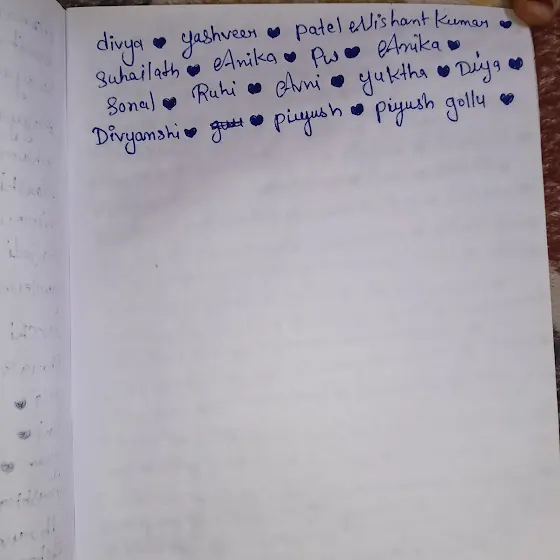 divya ♥ yashveer ♥ patel Nishant Kumar ♥
Suhailath ♥ Anika ♥ Pw ♥ Anika ♥
Sonal ♥ Ruhi ♥ Avni ♥ yuktha ♥ Divya ♥
Divyanshi ♥ ♥ piyush ♥ piyush golly ♥